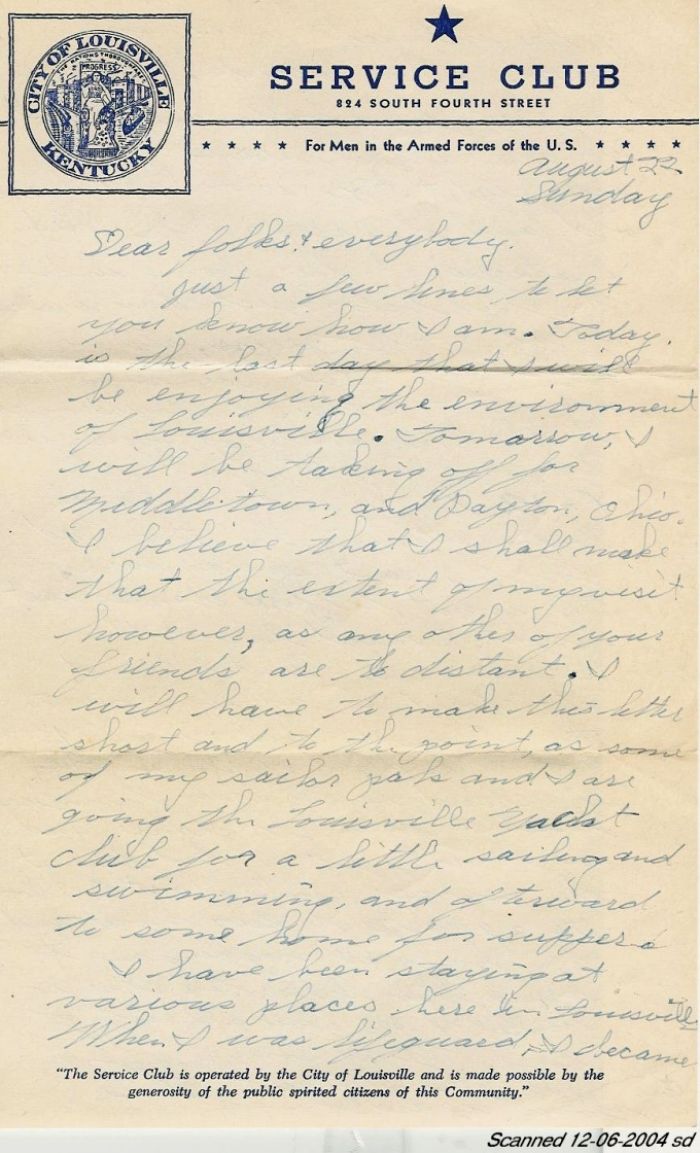 CITY OF LOUISVILLE
PROGRESS
KENTUCKY
SERVICE CLUB
824 SOUTH FOURTH STREET
For Men in the Armed Forces of the U.S.
August 22
Sunday
Dear folks & everybody.
Just a few lines to let
you know how I am. Today,
is the last day that I will
be enjoying the environment
of Louisville. Tomarrow, I
will be taking off for
Middletown, and Dayton, Ohio.
I believe that I shall make
that the extent of my visit
however, as any other of your
friends are to distant. I
will have to make this letter
short and to the point, as some
of my sailor pals and I are
going the Louisville Yacht
Club for a little sailing and
swimming, and afterward
to some home for supper.
I have been staying at
various places here in Louisville
When I was lifeguard, I became
"The Service Club is operated by the City of Louisville and is made possible by the
generosity of the public spirited citizens of this Community."
Scanned 12-06-2004 sd